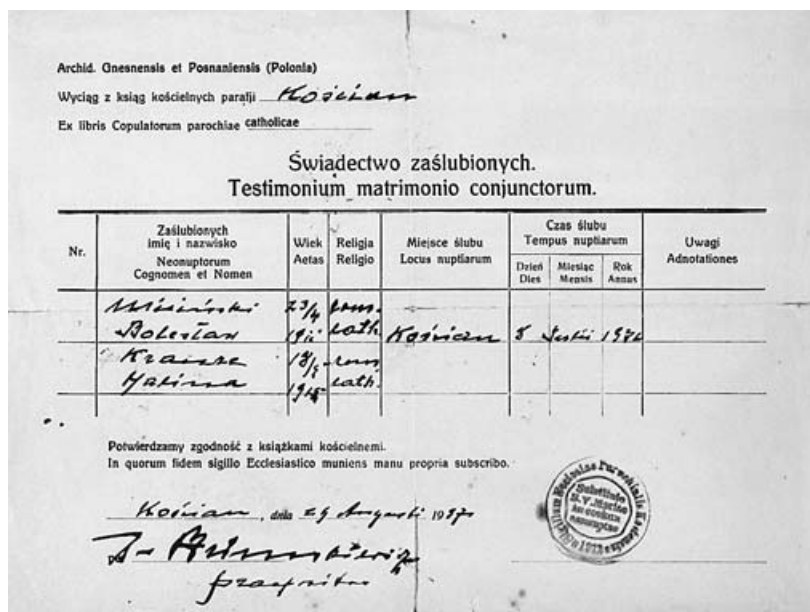 Archid. Gnesnensis et Posnaniensis (Polonia)
Wyciąg z ksiąg kościelnych parafji Kościan
Ex libris Copulatorum parochiae catholicae
Świadectwo zaślubionych.
Testimonium matrimonio conjunctorum.
Nr.
Zaślubionych
imię i nazwisko
Neonuptorum
Cognomen et Nomen
Wiek
Aetas
Religja
Religio
Miejsce ślubu
Locus nuptiarum
Czas ślubu
Tempus nuptiarum
Dzień
Dies
Miesiąc
Mensis
Rok
Annus
Uwagi
Adnotationes
23/4 rom.
Bolesław cath. Kościan 8
Krauze rom
Halina cath.
Potwierdzamy zgodność z książkami kościelnemi.
In quorum fidem sigillo Ecclesiastico muniens manu propria subscribo.
Kościan, dnia 29 Augusti 193
B. V. Mariae
in coelum